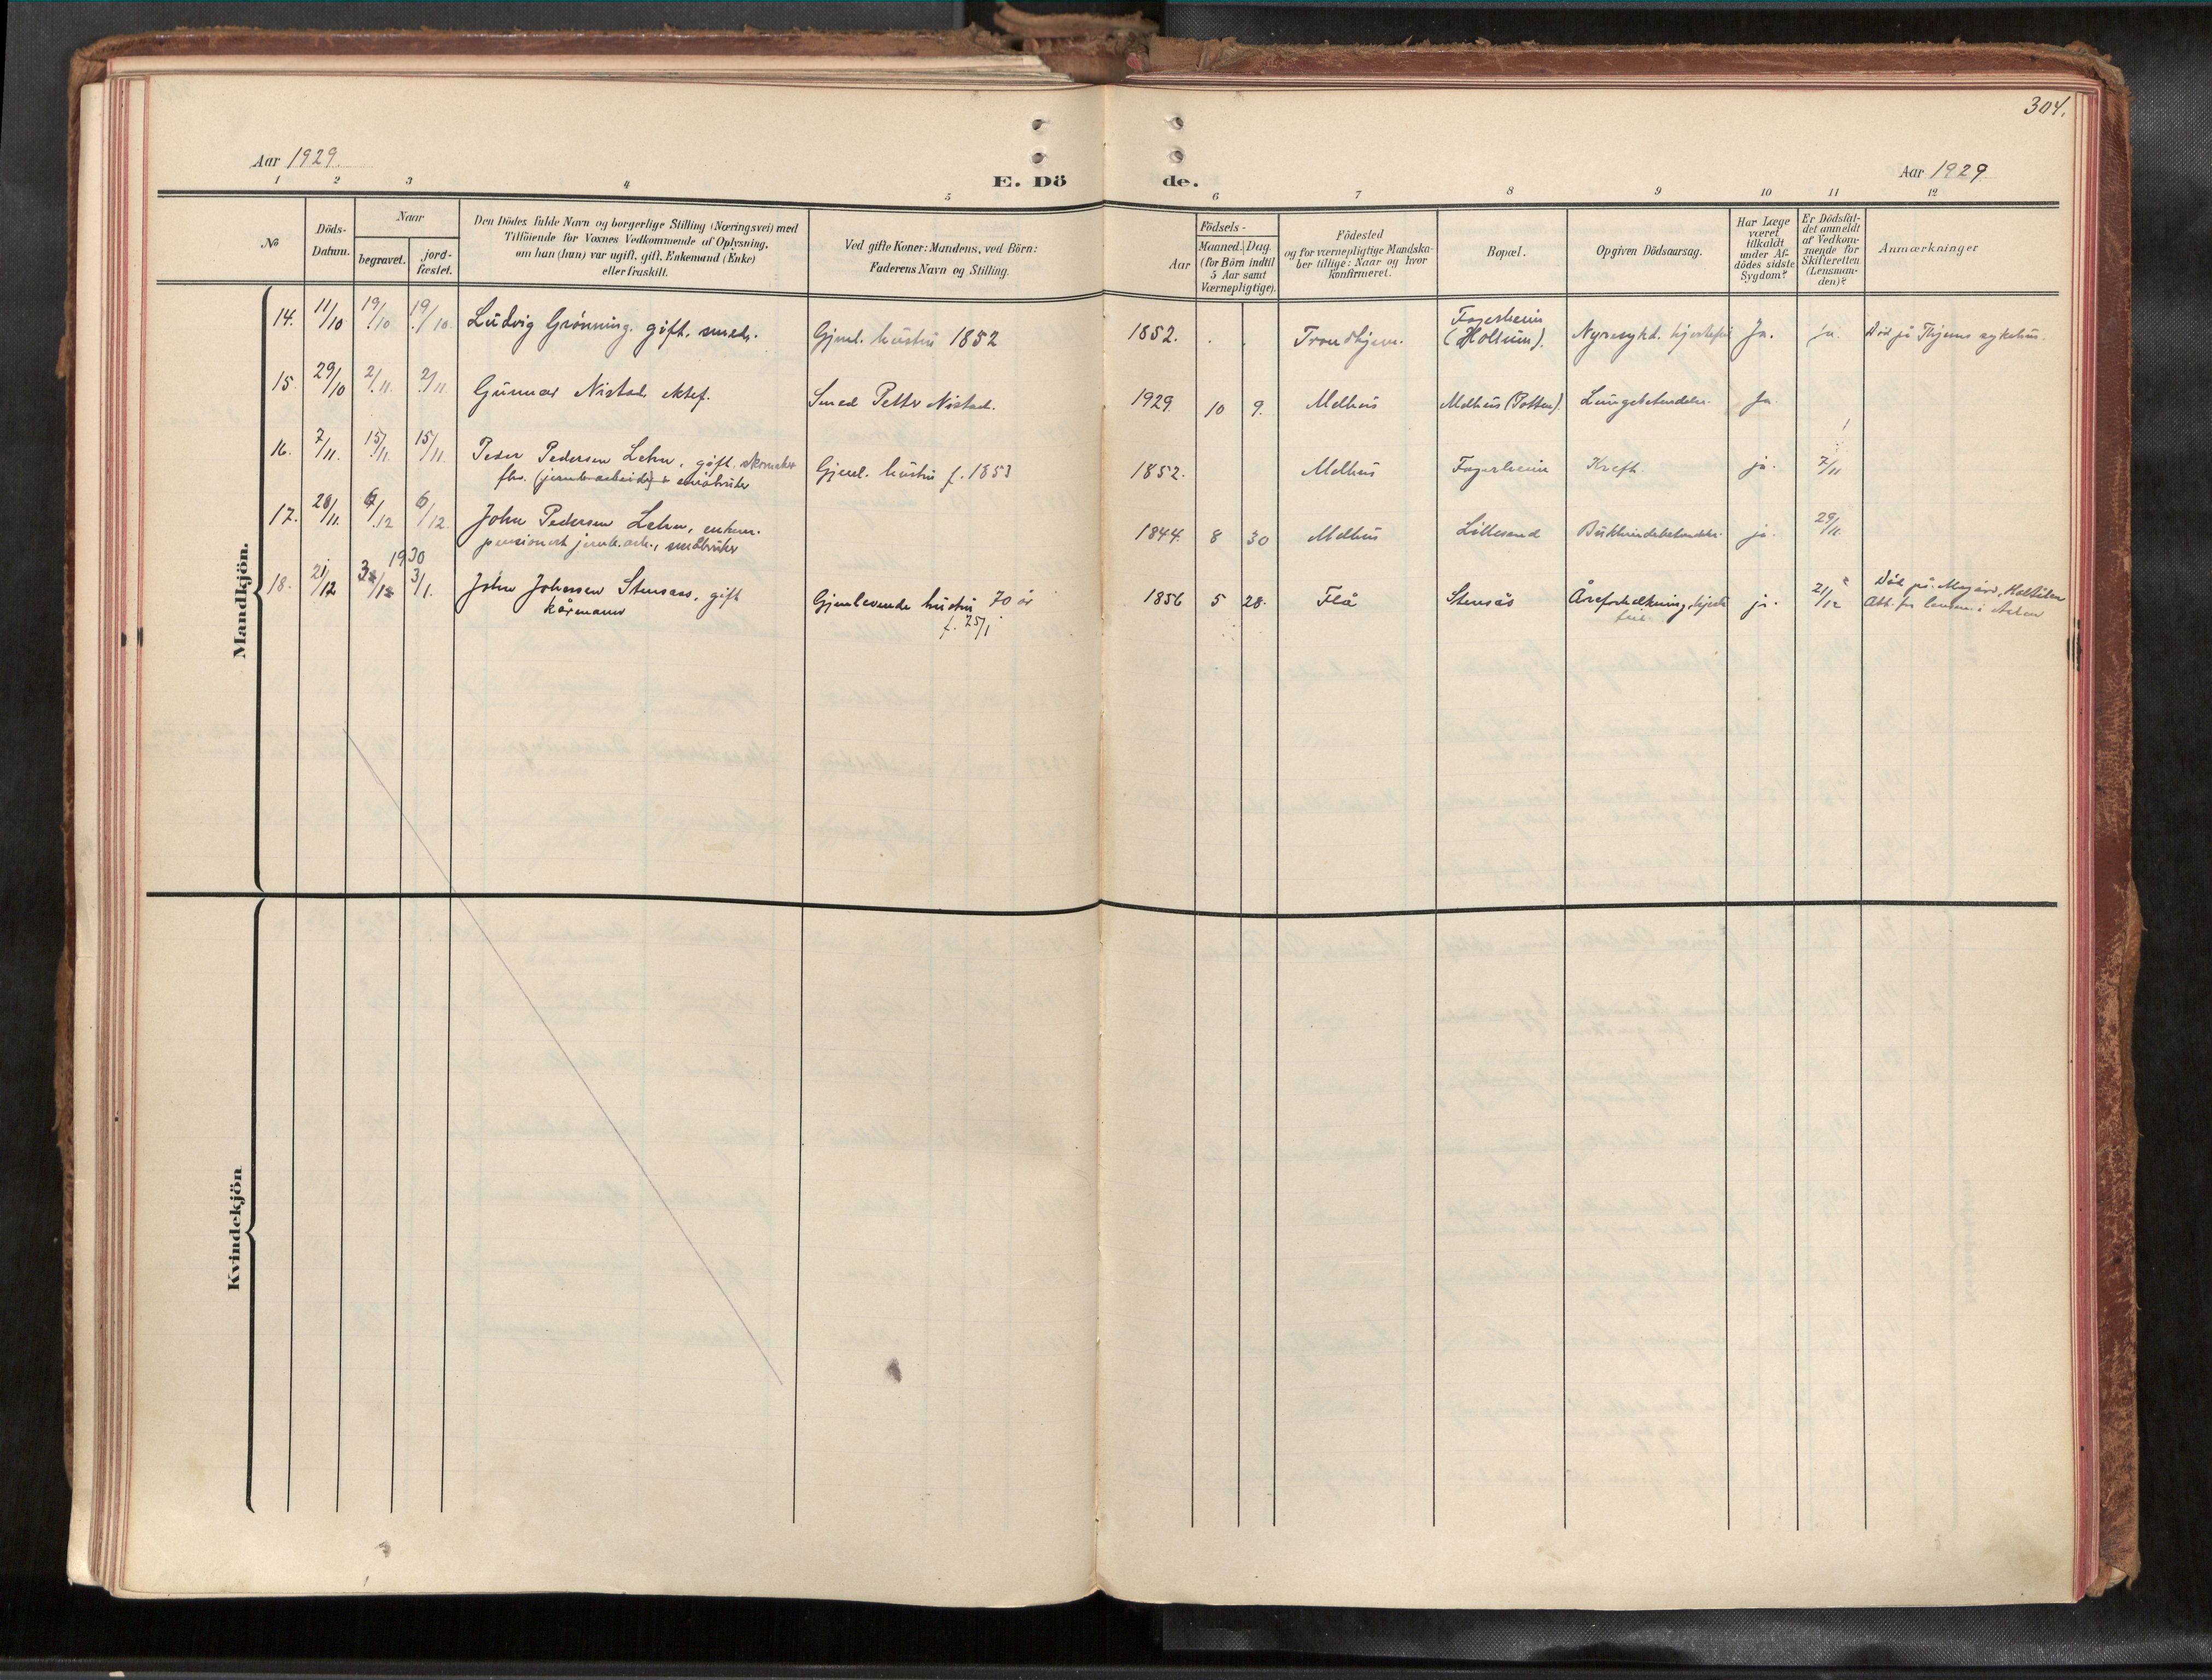 304.
Aar 1929
E. Dö de.
Aar 1929
1 2 3 4 5 6 7 8 9 10 11 12
No
Döds-
Datum.
Naar
begravet.
jord-
fæstet.
Den Dödes fulde Navn og borgerlige Stilling (Næringsvei) med
Tilföiende for Voxnes Vedkommende af Oplysning,
om han (hun) var ugift, gift, Enkemand (Enke)
eller fraskilt.
Ved gifte Koner: Mandens, ved Börn:
Faderens Navn og Stilling.
Födsels-
Aar
Maaned. Dag.
(for Börn indtil
5 Aar samt
Værnepligtige).
Födested
og for værnepligtige Mandska-
ber tillige: Naar og hvor
konfirmeret.
Bopæl.
Opgiven Dödsaarsag.
Har Læge
været
tilkaldt
under Af-
dödes sidste
Sygdom?
Er Dödsfal-
det anmeldt
af Vedkom-
mende for
Skifteretten
(Lensman-
den)?
Anmærkninger
Mandkjön.
14. 11/10 19/10 19/10. Ludvig Grönning, gift, smed. Gjenl. hustru 1852 1852. Trondhjem. Fagerheim
(Holtum). Nyresykd. hjertefeil Ja. ja. Död på Thjems sykehus.
15. 29/10 2/11. 2/11. Gunnar Nistad, ektef. Smed Petter Nistad. 1929 10 9. Melhus Melhus Lungebetendelse Ja.
16. 7/11. 15/11. 15/11. Peder Pedersen Lehn, gift, skomaker
fhv. (jernb.arbeider) & småbruker Gjenl. hustru f. 1853 1852. Melhus Fagerheim Kreft. ja. 7/11
17. 28/11. 6/12 6/12. John Pedersen Lehn, enkem.
pensionert jernb.arb., småbruker 1844. 8 30 Melhus Lillesand Bukhindebetendelse ja. 29/11.
1930
18. 21/12 3/1. John Johnsen Stensaas, gift
kårmann Gjenlevende hustru 70 år
f. 25/1 1856 5 28. Flå Stensås Åreforkalkning, hjerte
feil ja. 21/12 Död på
Att. fra lensm. i
Kvindekjön